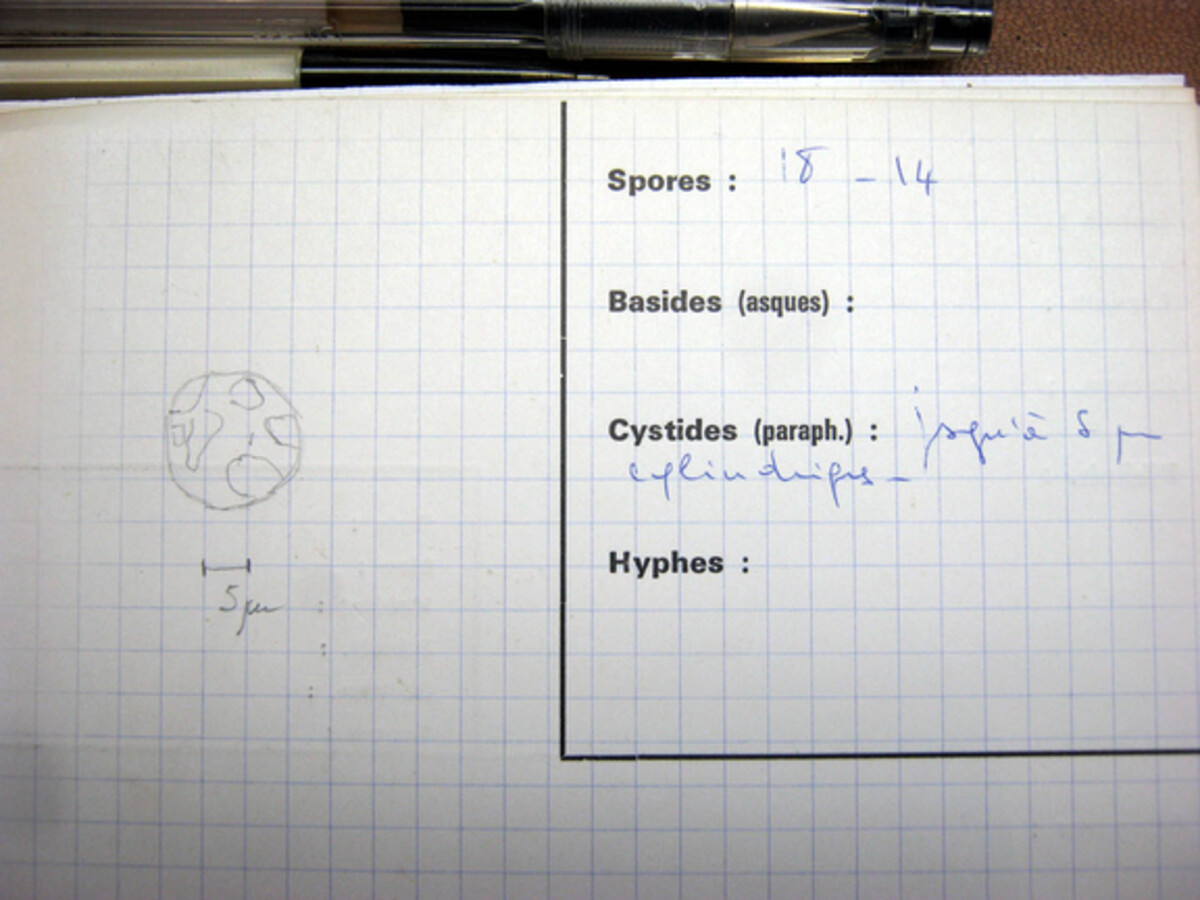 Spores : 18 - 14
Basides (asques) :
Cystides (paraph.) : jsqu'à 8 µm
cylindriqs -
Hyphes :
5 µm